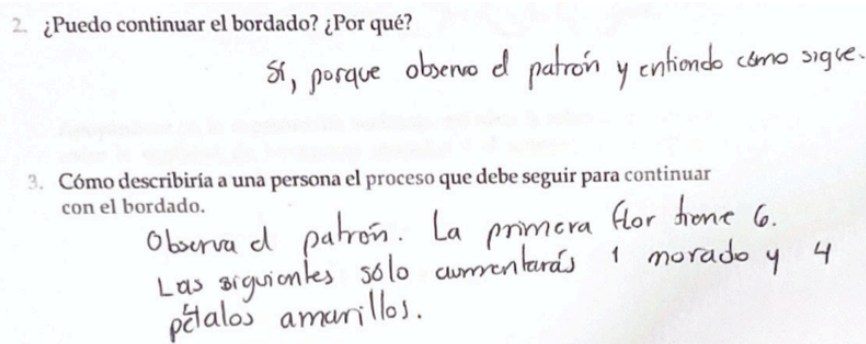 2. ¿Puedo continuar el bordado? ¿Por qué?
Sí, porque observo el patrón y entiendo cómo sigue.
3. Cómo describiría a una persona el proceso que debe seguir para continuar
con el bordado.
Observa el patrón. La primera flor tiene 6.
Las siguientes sólo aumentarás 1 morado y 4
pétalos amarillos.